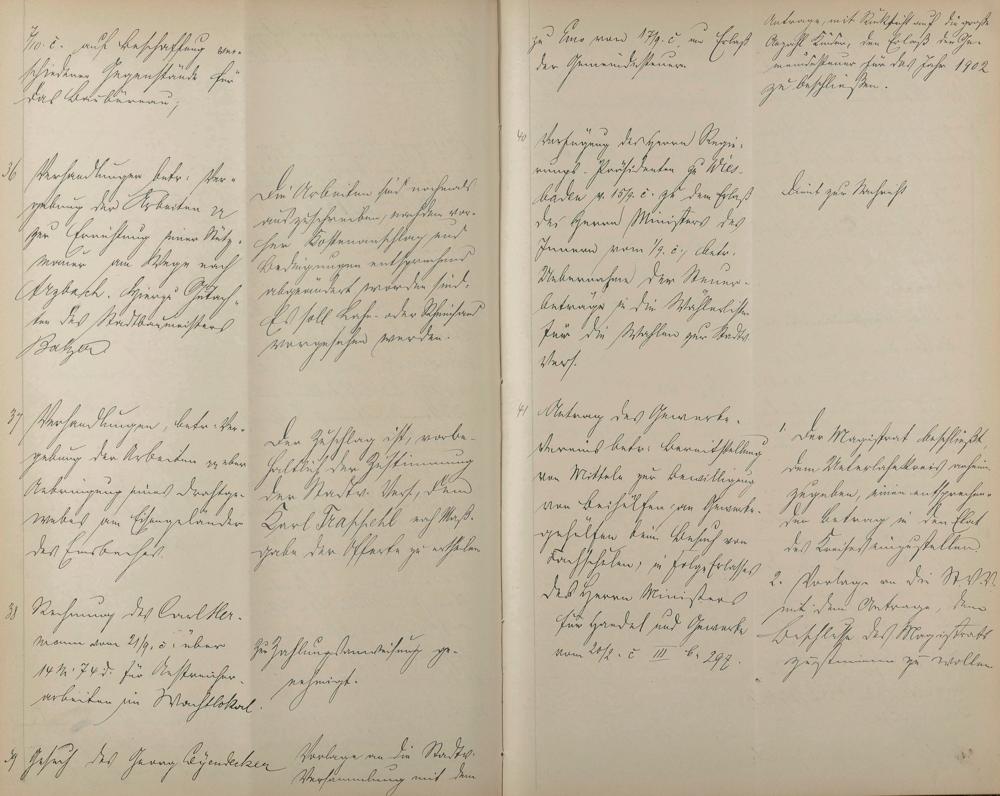 7/10. c. auf Beschaffung ver-
schiedener Gegenstände für
das Baubüreau;
36
Verhandlungen betr. Ver-
gebung der Arbeiten
zur Errichtung einer Stütz-
mauer am Wege nach
Arzbach. Hierzu Gutach-
ten des Stadtbaumeisters
Balzer
Die Arbeiten sind nochmals
auszuschreiben, nachdem vor-
her Kostenanschlag und
Bedingungen entsprechend
abgeändert worden sind.
Es soll Lahn- oder Rheinsand
vorgesehen werden.
37
Verhandlungen, betr. Ver-
gebung der Arbeiten
Anbringung eines Drahtge-
webes am Eisengeländer
des Emsbaches.
Der Zuschlag ist, vorbe-
haltlich der Zustimmung
der Stadtv. Vers., dem
Karl nach Maß-
gabe der Offerte zu ertheilen
38
Rechnung des Carl Her-
mann vom 21/9. c. über
14 M. 74 d. für Anstreicher-
arbeiten im Wachtlokal.
Zur Zahlungsanweisung ge-
nehmigt.
39
Gesuch des Georg Leyendecker
Vorlage an die Stadtv.
Versammlung mit dem
zu Ems vom 17/9. c. um Erlaß
der Gemeindesteuer
Antrage, mit Rücksicht auf die große
Anzahl Kinder, den Erlaß der Ge-
meindesteuer für das Jahr 1902
zu beschließen.
40
Verfügung des Herrn Regie-
rungs-Präsidenten zu Wies-
baden v. 15/9. c. zu dem Erlaß
des Herrn Ministers des
Innern vom 1/9. c., betr.
Uebernahme der Steuer-
beträge in die Wählerliste
für die Wahlen zur Stadtv.
Vers.
Dient zur Nachricht
41
Antrag des Gewerbe-
vereins betr. Bereitstellung
von Mitteln zur Bewilligung
von Beihülfen an Gewerbe-
gehülfen beim Besuch von
Fachschulen, in Folge Erlasses
des Herrn Ministers
für Handel und Gewerbe
vom c III b. 297.
1. Der Magistrat beschließt
dem Unterlahnkreis anheim
zugeben, einen entsprechen-
den Betrag in den Etat
des Kreises einzustellen.
2. Vorlage an die St.V.V.
mit dem Antrage, dem
Beschlusse des Magistrats
zustimmen zu wollen